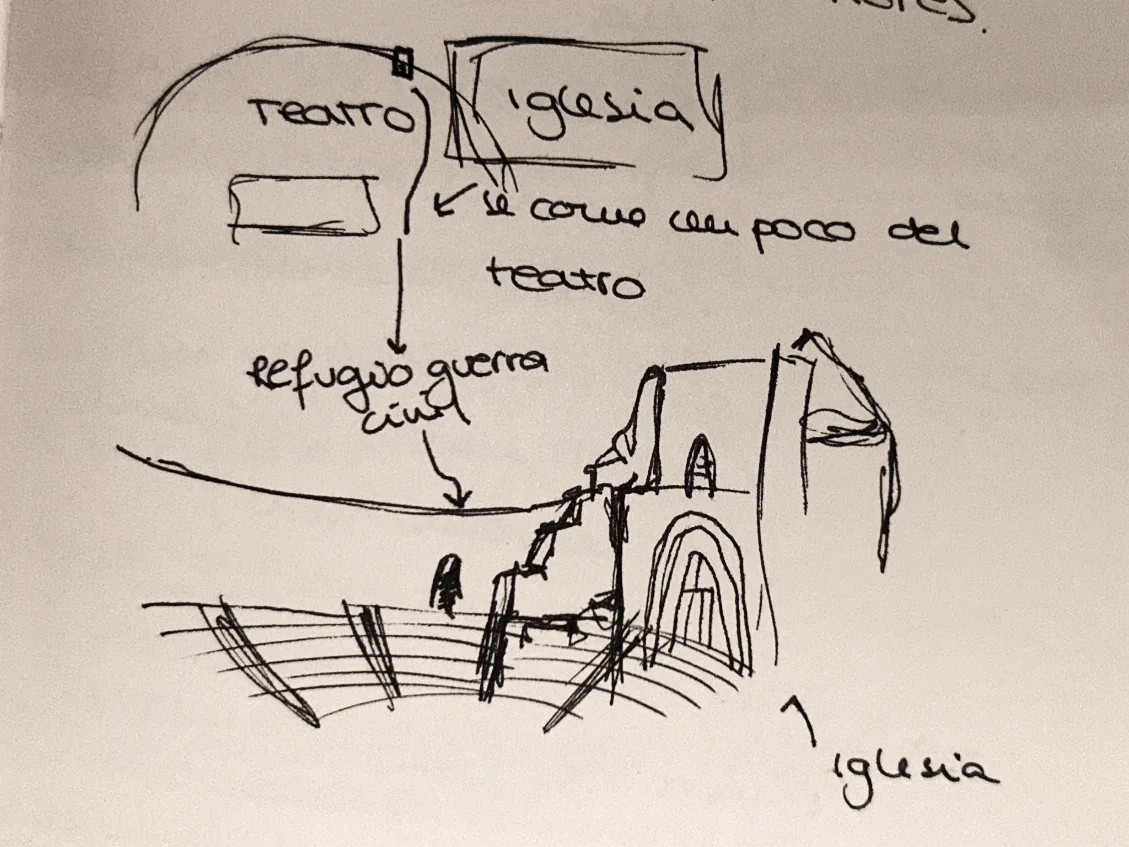 Teatro
iglesia
se come un poco del
teatro
Refugio guerra
civil
iglesia